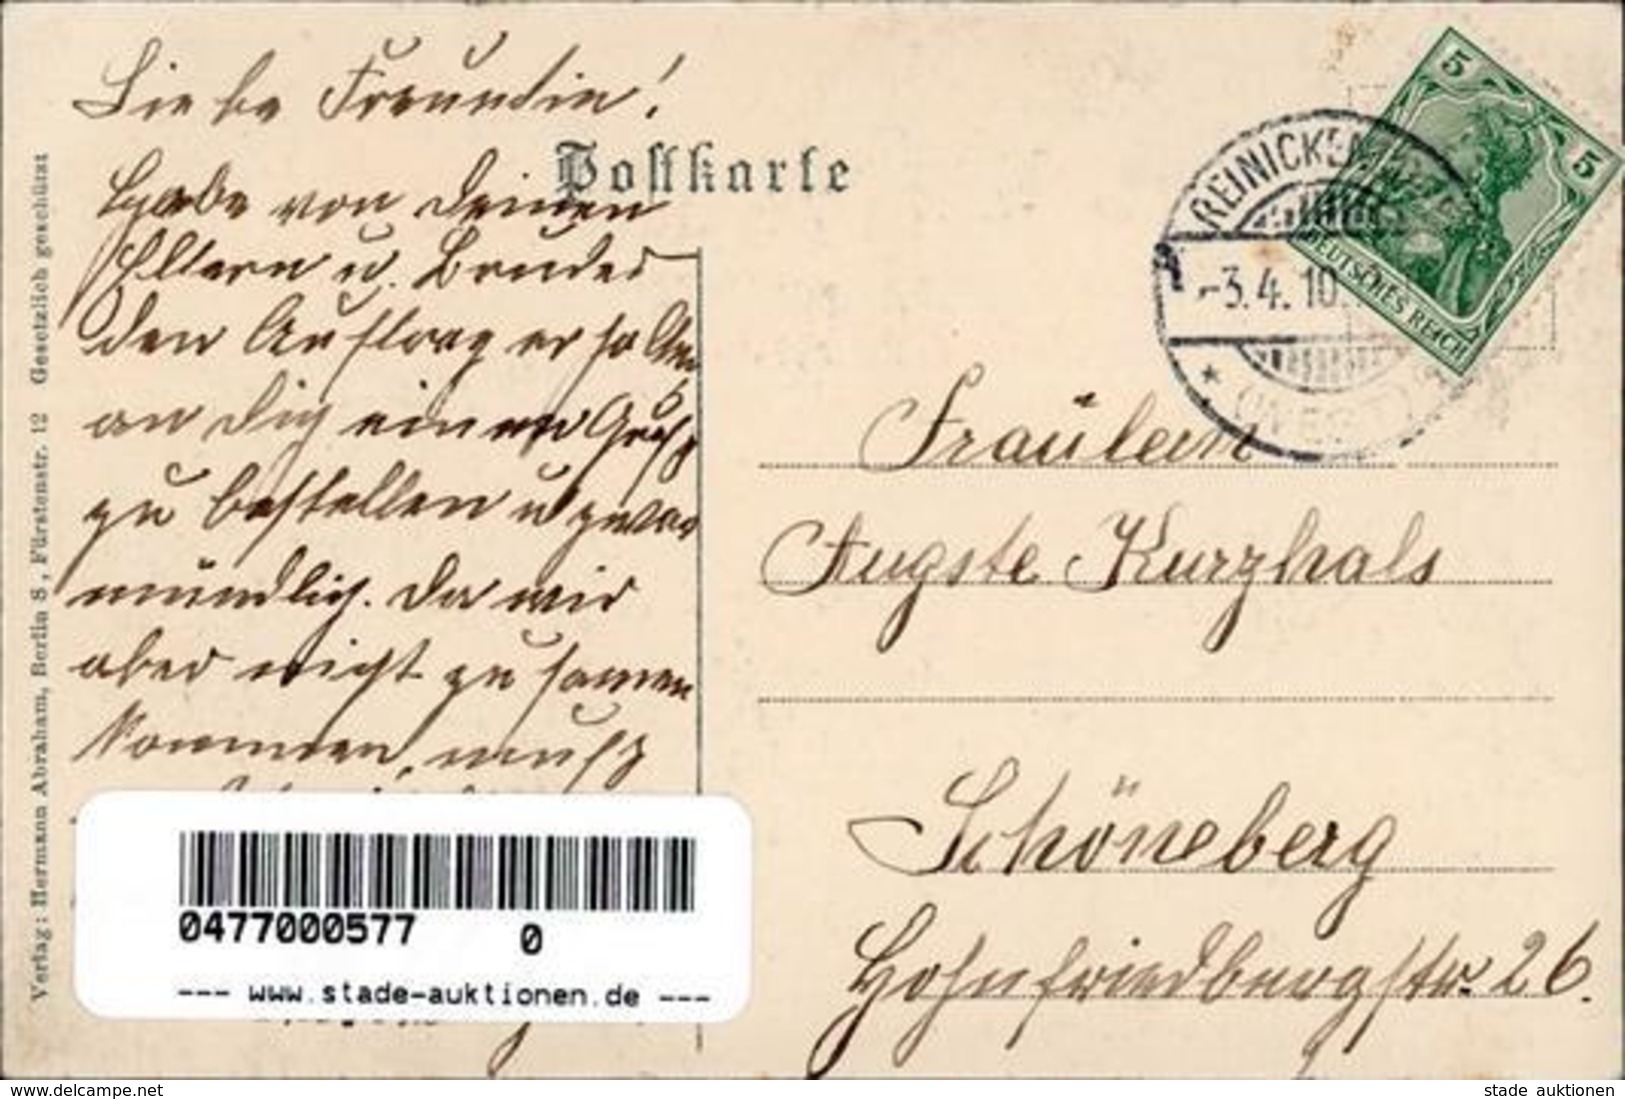 Liebe Freundin!
Postkarte
Habe von Deinen
Eltern u. Bruder
den Auftrag erhalten
an Dich einen Gruß
zu bestellen u zwar
mündlich. Da wir
aber nicht zusamen
kommen, muß
Gesetzlich geschützt
Verlag: Hermann Abraham, Berlin S, Fürstenstr. 12
REINICKENDORF
-3.4.10.
* (WEST)
5
5
DEUTSCHES REICH
Fräulein
Auguste Kurzhals
Schöneberg
Hohnfriedbergstr. 26.
0477000577 0
--- www.stade-auktionen.de ---
www.delcampe.net
stade auktionen